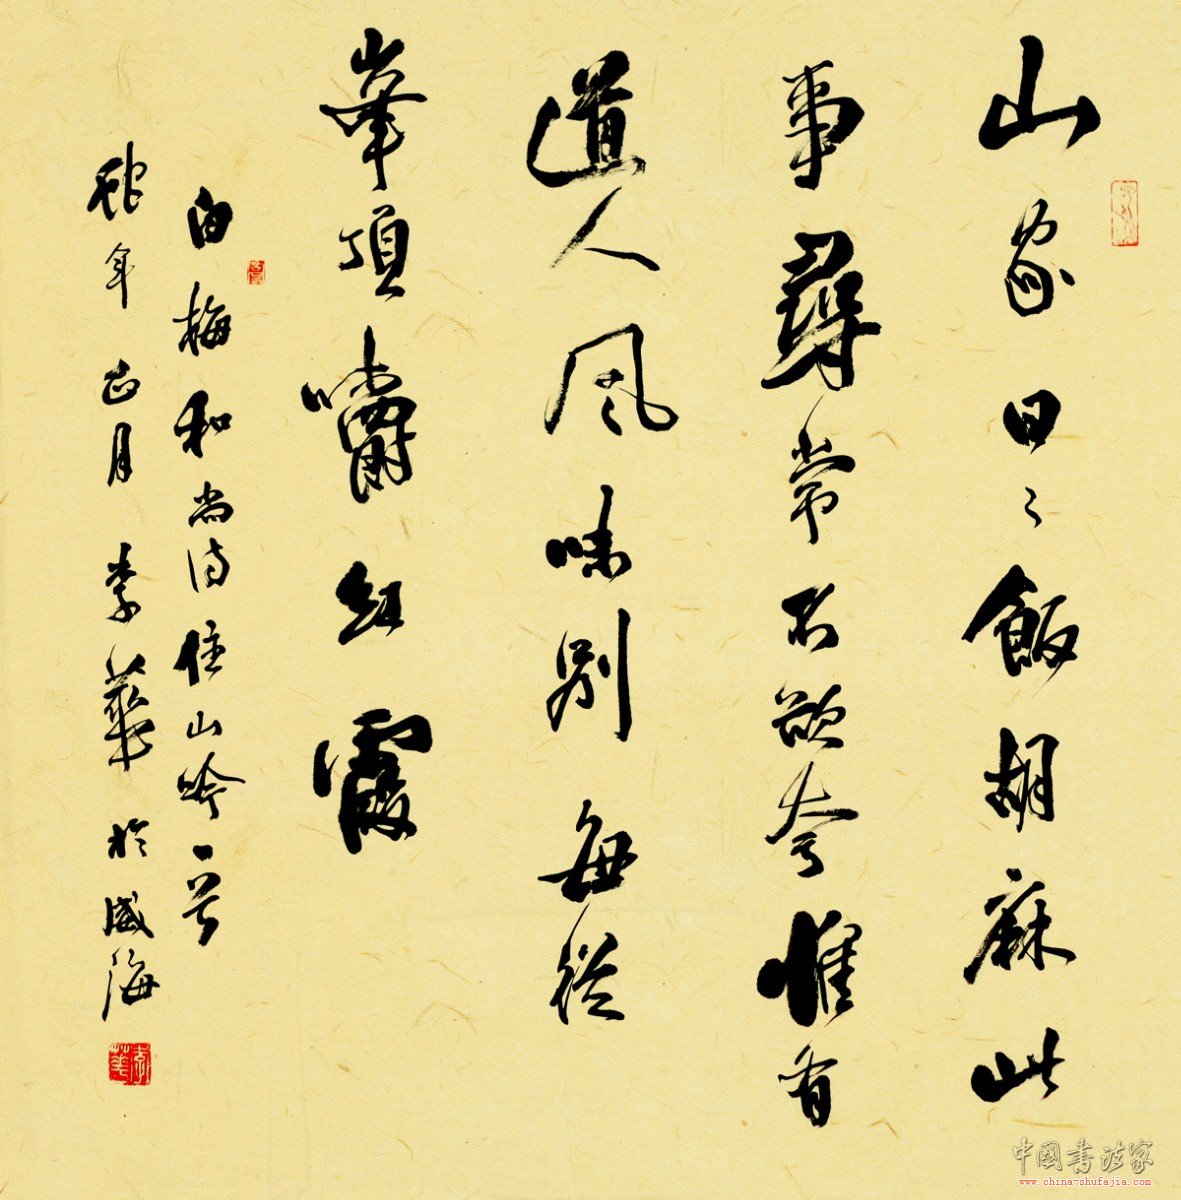 山家日々飯胡麻此
事尋常不欲夸惟有
道人風味別每從
峯頂嚼紅霞
白梅和尚詩住山吟一首
蛇年正月李華於威海
李華
中国书法家
www.china-shufajia.com